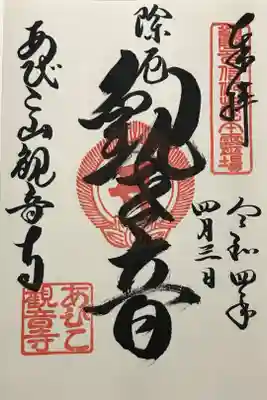 奉拝
令和四年
四月三日
除厄
観世音
あびこ山観音寺
あびこ
観音寺